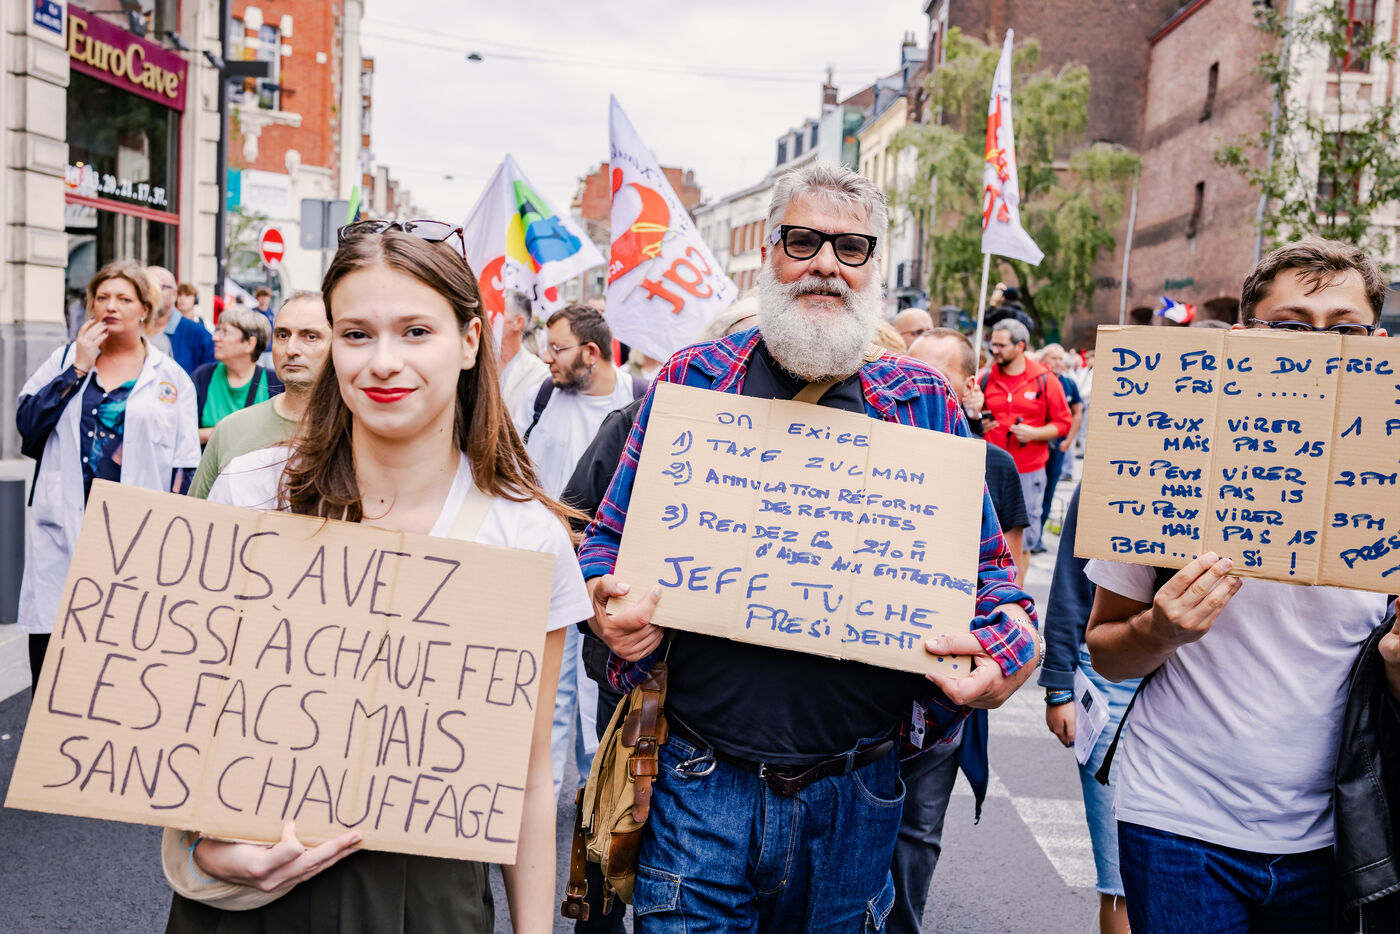 EuroCave
03.20.21.17.37.
cgt
VOUS AVEZ
RÉUSSI À CHAUFFER
LES FACS MAIS
SANS CHAUFFAGE
ON EXIGE
1) TAXE ZUCMAN
2) ANNULATION RÉFORME
DES RETRAITES
3) RENDEZ
D'AIDES AUX ENTREPRISES
JEFF TUCHE
PRESIDENT...
DU FRIC DU FRIC
DU FRIC......
TU PEUX VIRER 1 P
MAIS PAS 15
TU PEUX VIRER 2PM
MAIS PAS 15
TU PEUX VIRER 3PM
MAIS PAS 15
BEN.... SI !